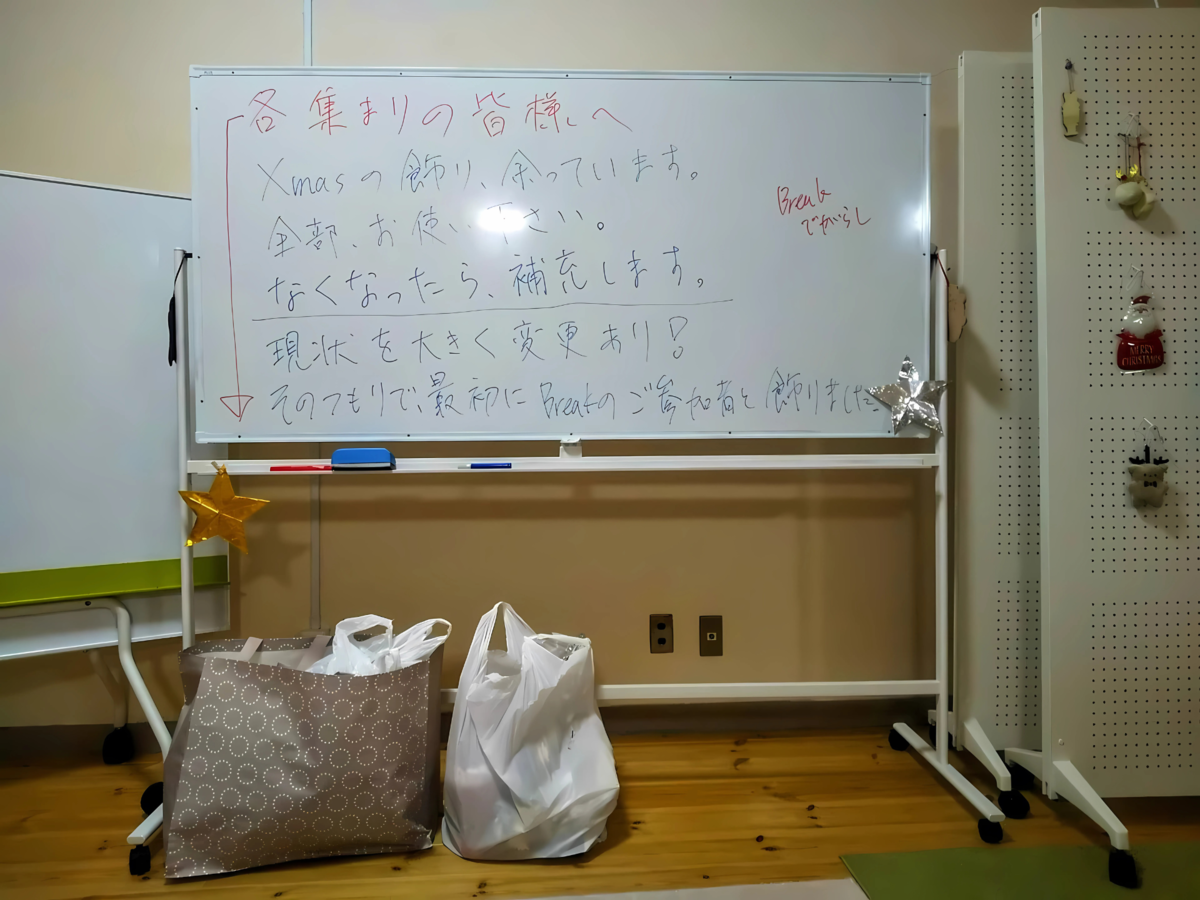 各集まりの皆様へ
Xmasの飾り、余っています。
全部、お使い下さい。
なくなったら、補充します。
現状を大きく変更あり!
そのつもりで、最初にBreakのご参加者と飾りました
Break
でがらし
MERRY
CHRISTMAS